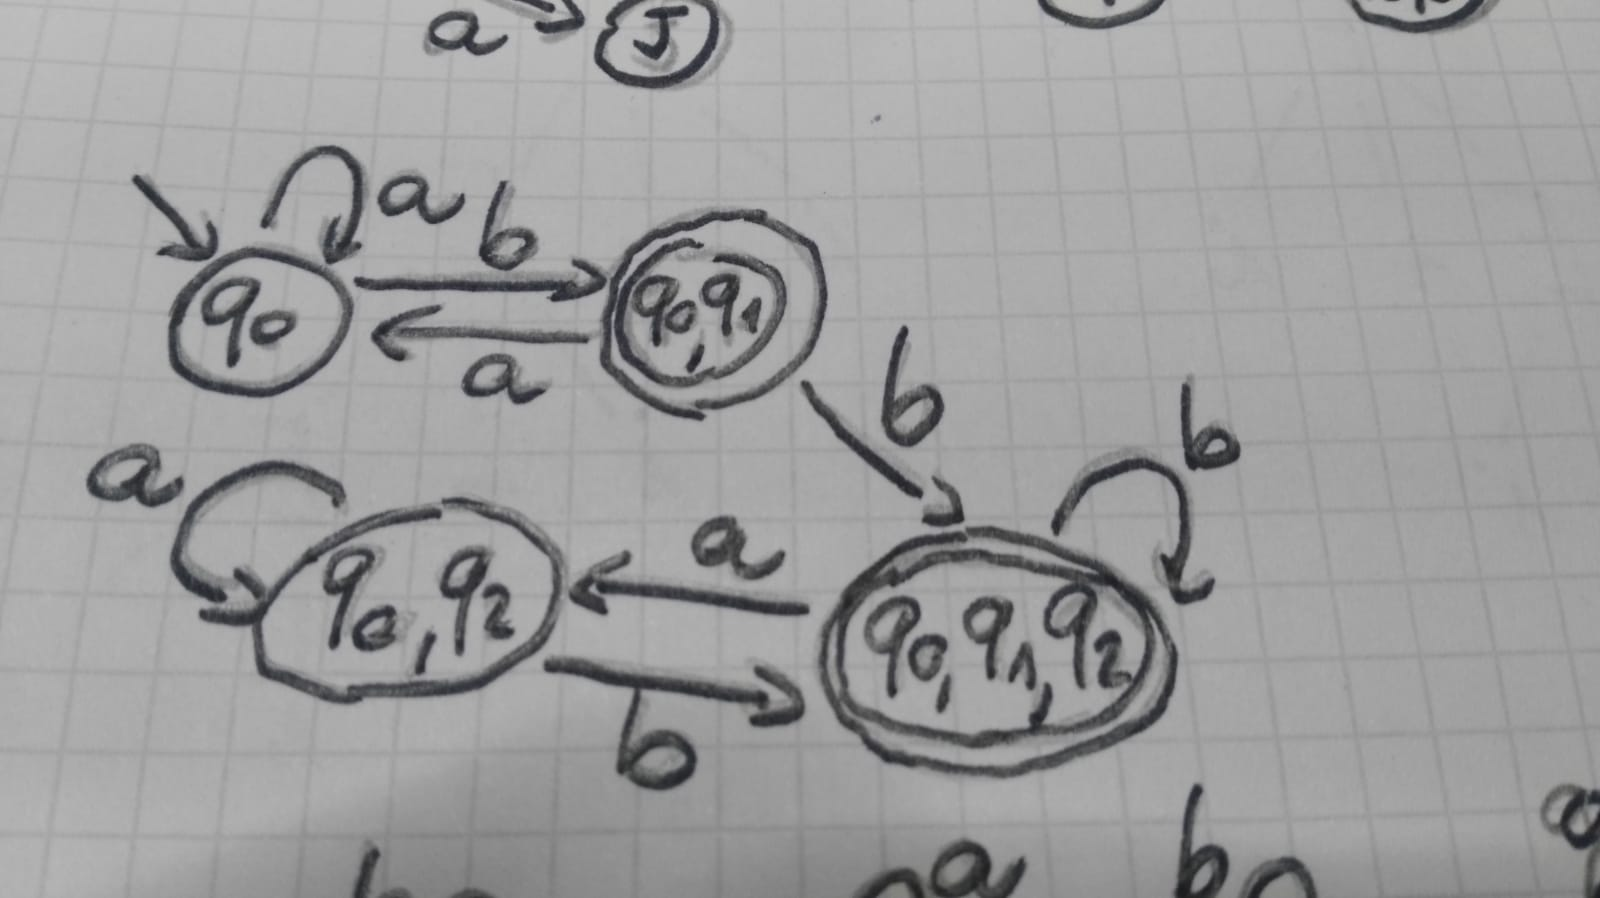 a J
a b
q0 q0,q1
a
b
b
a
a
q0,q2 q0,q1,q2
b
b
a